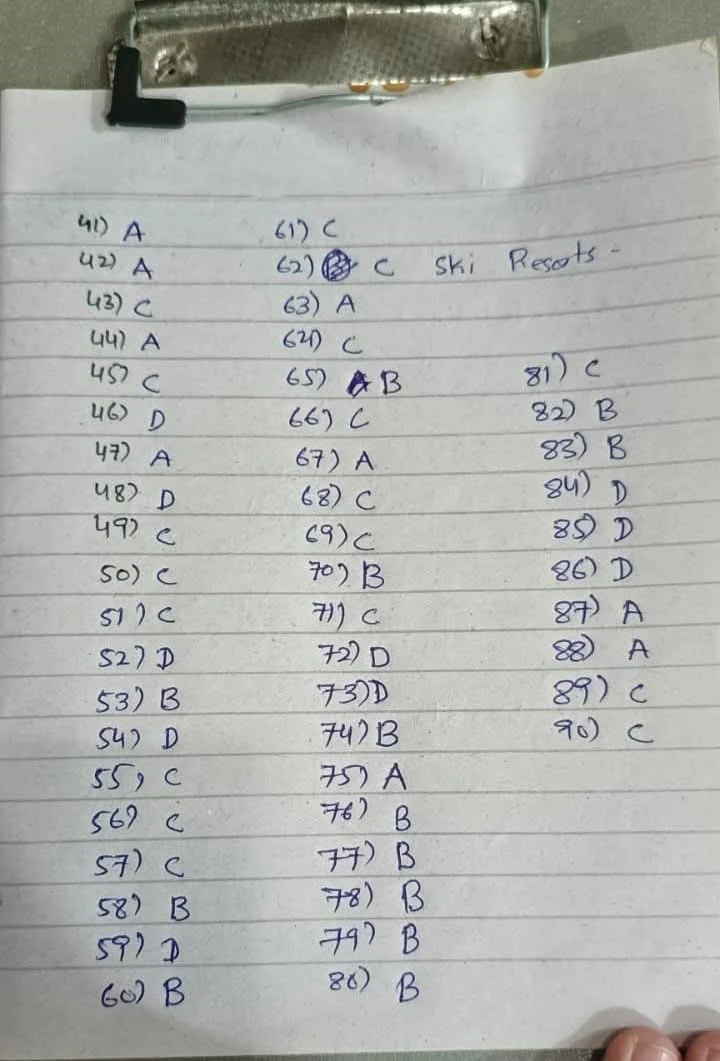 41) A
42) A
43) C
44) A
45) C
46) D
47) A
48) D
49) C
50) C
51) C
52) D
53) B
54) D
55) C
56) C
57) C
58) B
59) D
60) B
61) C
62) C Ski Resorts -
63) A
64) C
65) B
66) C
67) A
68) C
69) C
70) B
71) C
72) D
73) D
74) B
75) A
76) B
77) B
78) B
79) B
80) B
81) C
82) B
83) B
84) D
85) D
86) D
87) A
88) A
89) C
90) C